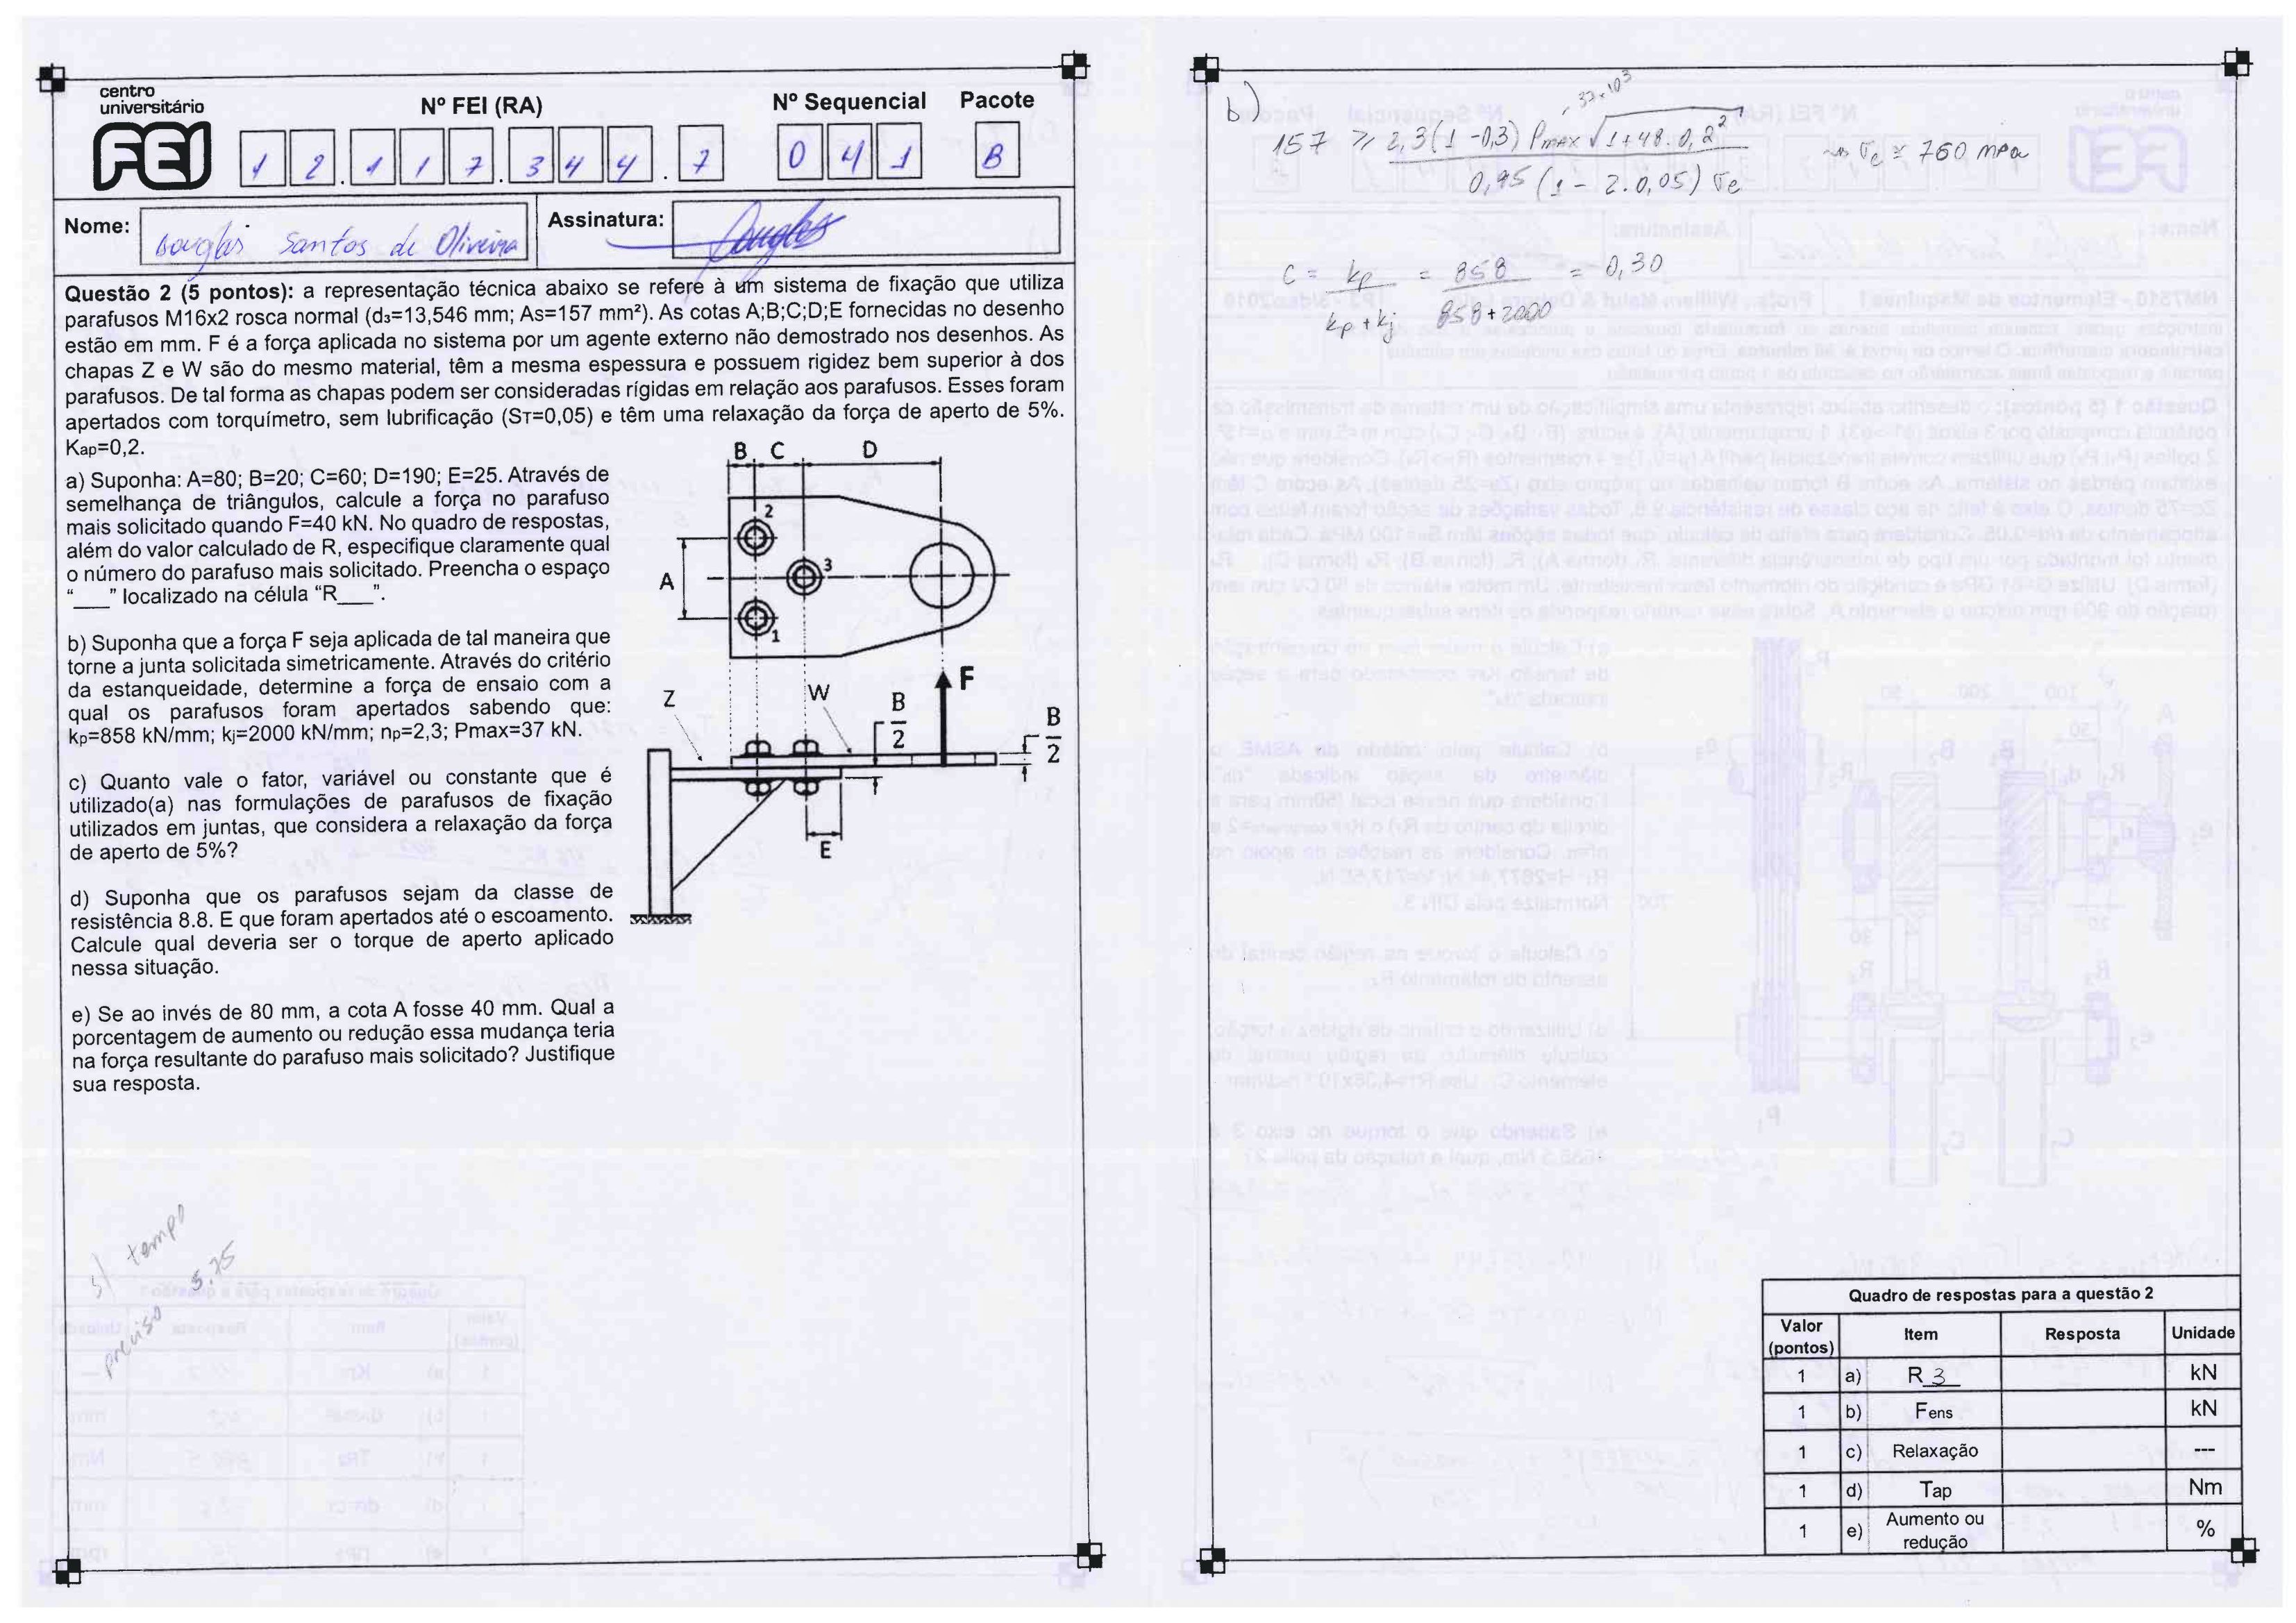 centro
universitário
FEI
Nº FEI (RA)
Nº Sequencial
Pacote
1 2 . 1 1 7 . 3 4 4 . 7
0 4 1
B
Nome:
Douglas Santos de Oliveira
Assinatura:
Douglas
Questão 2 (5 pontos): a representação técnica abaixo se refere à um sistema de fixação que utiliza
parafusos M16x2 rosca normal (d₃=13,546 mm; As=157 mm²). As cotas A;B;C;D;E fornecidas no desenho
estão em mm. F é a força aplicada no sistema por um agente externo não demostrado nos desenhos. As
chapas Z e W são do mesmo material, têm a mesma espessura e possuem rigidez bem superior à dos
parafusos. De tal forma as chapas podem ser consideradas rígidas em relação aos parafusos. Esses foram
apertados com torquímetro, sem lubrificação (ST=0,05) e têm uma relaxação da força de aperto de 5%.
Kap=0,2.
a) Suponha: A=80; B=20; C=60; D=190; E=25. Através de
semelhança de triângulos, calcule a força no parafuso
mais solicitado quando F=40 kN. No quadro de respostas,
além do valor calculado de R, especifique claramente qual
o número do parafuso mais solicitado. Preencha o espaço
“___” localizado na célula “R___”.
b) Suponha que a força F seja aplicada de tal maneira que
torne a junta solicitada simetricamente. Através do critério
da estanqueidade, determine a força de ensaio com a
qual os parafusos foram apertados sabendo que:
kp=858 kN/mm; kj=2000 kN/mm; np=2,3; Pmax=37 kN.
c) Quanto vale o fator, variável ou constante que é
utilizado(a) nas formulações de parafusos de fixação
utilizados em juntas, que considera a relaxação da força
de aperto de 5%?
d) Suponha que os parafusos sejam da classe de
resistência 8.8. E que foram apertados até o escoamento.
Calcule qual deveria ser o torque de aperto aplicado
nessa situação.
e) Se ao invés de 80 mm, a cota A fosse 40 mm. Qual a
porcentagem de aumento ou redução essa mudança teria
na força resultante do parafuso mais solicitado? Justifique
sua resposta.
B C D
2
A
3
1
Z
W
B
2
F
B
2
E
s/ tempo
preciso 3.75
b)
37×10³
157 ⩾ 2,3(1 -0,3) PMAX √1+48. 0,2²
0,95 (1 - 2. 0,05) σe
⇝ σe ≅ 760 mPa
C = kp = 858 = 0,30
kp + kj 858+2000
Quadro de respostas para a questão 2
Valor
(pontos)
Item
Resposta
Unidade
1 a) R_3_ kN
1 b) Fens kN
1 c) Relaxação ---
1 d) Tap Nm
1 e) Aumento ou
redução %